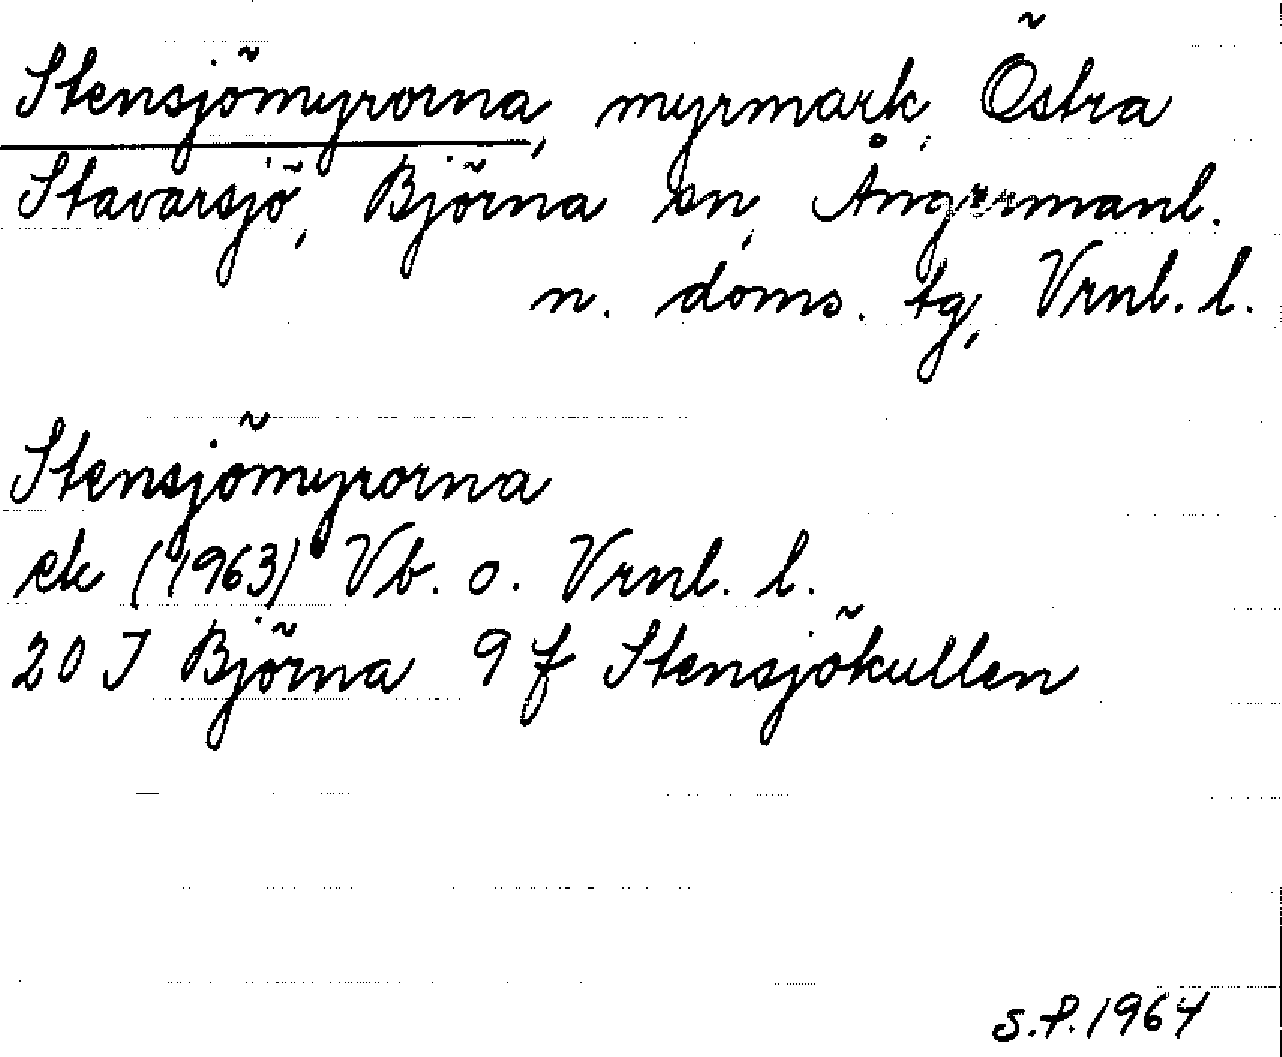 Stensjömyrorna, myrmark, Östra
Stavarsjö, Björna sn, Ångermanl.
n. doms. tg, Vrnl. l.
Stensjömyrorna
ek (1963) Vb. o. Vrnl. l.
20 J Björna 9 f Stensjökullen
S.P. 1964